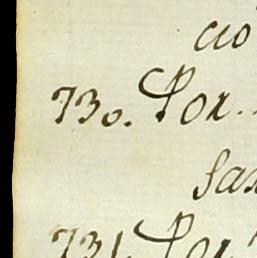 cio
730. Por..
San
731. Por